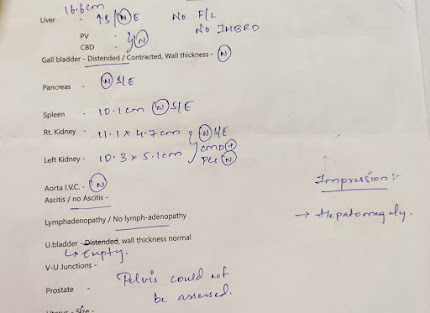 16.6cm
Liver - ↑S/(N)E No F/L
No IHBRD
PV -
CBD - } (N)
Gall bladder - Distended / Contracted, Wall thickness - (N)
Pancreas - (N) S/E
Spleen - 10.1cm (N) S/E
Rt. Kidney - 11.1 x 4.7cm } (N) S/E
CMD (+)
Left Kidney - 10.3 x 5.1cm PCS (N)
Aorta I.V.C. - (N)
Ascitis / no Ascitis -
Impression:-
→ Hepatomegaly.
Lymphadenopathy / No lymph-adenopathy
U.bladder - Distended, wall thickness normal
↳ Empty.
V-U Junctions -
Prostate - Pelvis could not
be assessed.
Uterus - Size -